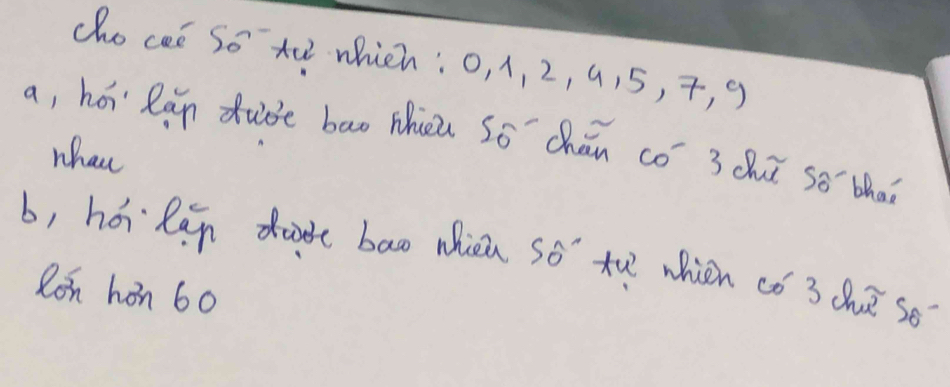 cho các số tự nhiên : 0,1,2,4,5,7,9
a, hỏi lặp được bao nhiêu số chẵn có 3 chữ số khác
nhau
b, hỏi lặp được bao nhiêu số tự nhiên có 3 chữ số
lớn hơn 60